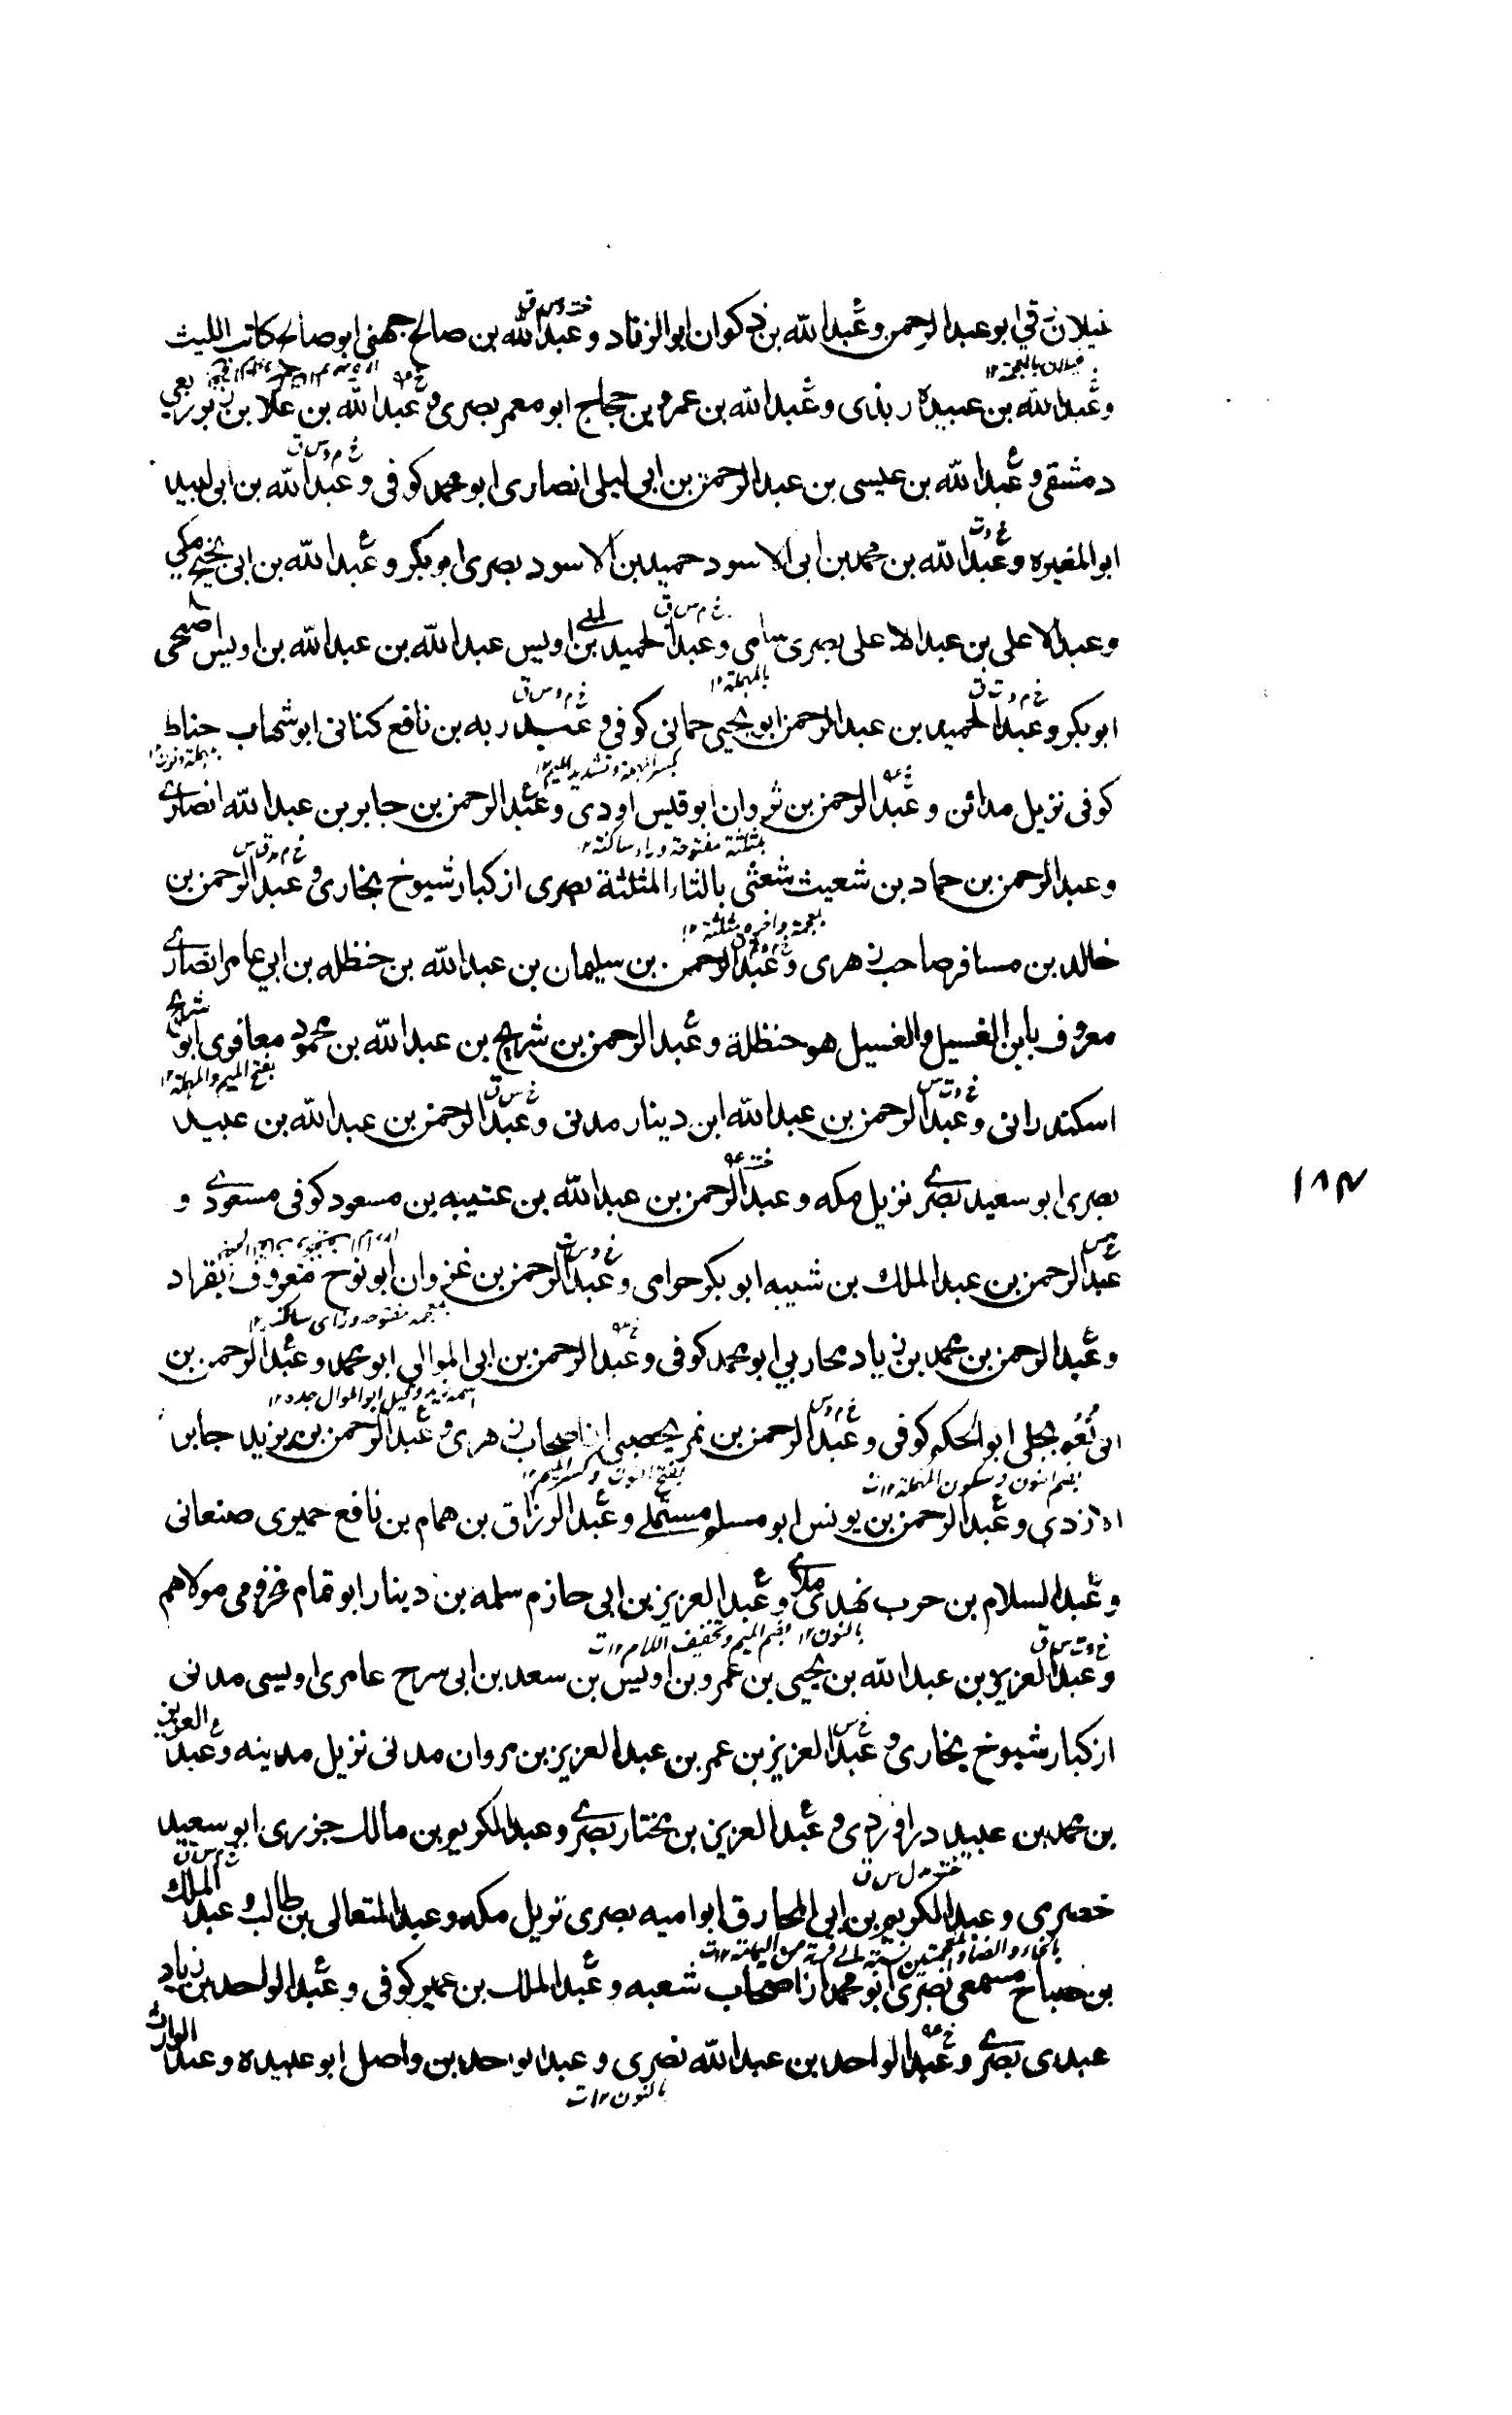 غیلان قی ابو عبد الرحمن و عبد الله بن ذکوان ابو الزناد و عبد الله بن صالح جهنی ابو صالح کاتب اللیث
و عبد الله بن عبیده ربذی و عبد الله بن عمرو بن حجاج ابو معمر بصری و عبد الله بن علا بن زبر ربعی
دمشقی و عبد الله بن عیسی بن عبد الرحمن بن ابی لیلی انصاری ابو محمد کوفی و عبد الله بن ابی لبید
ابو المغیره و عبد الله بن محمد بن ابی الاسود حمید بن الاسود بصری ابو بکر و عبد الله بن ابی نجیح مکی
و عبد الاعلی بن عبد الاعلی بصری سامی و عبد الحمید بن ابی اویس عبد الله بن عبد الله بن اویس اصبحی
بالمهملة ۱۲
ابو بکر و عبد الحمید بن عبد الرحمن ابو یحیی حمانی کوفی و عبد ربه بن نافع کنانی ابو شهاب حناط
بکسر المهملة و تشدید المیم ۱۲
کوفی نزیل مدائن و عبد الرحمن بن ثروان ابو قیس اودی و عبد الرحمن بن جابر بن عبد الله انصاری
بمثلثة مفتوحة و راء ساکنة ۱۲
و عبد الرحمن بن حماد بن شعیث شعثی بالثاء المثلثة بصری از کبار شیوخ بخاری و عبد الرحمن بن
بمعجمة و اخره مثلثة ۱۲
خالد بن مسافر صاحب زهری و عبد الرحمن بن سلیمان بن عبد الله بن حنظله بن ابی عامر انصاری
معروف بابن الغسیل و الغسیل هو حنظلة و عبد الرحمن بن شریح بن عبد الله بن محمود معافری ابو شریح
بفتح المیم و المهملة ۱۲
اسکندرانی و عبد الرحمن بن عبد الله ابن دینار مدنی و عبد الرحمن بن عبد الله بن عبید
بصری ابو سعید بصری نزیل مکه و عبد الرحمن بن عبد الله بن عتیبه بن مسعود کوفی مسعودی و
۱۸۲
عبد الرحمن بن عبد الملک بن شیبه ابو بکر حزامی و عبد الرحمن بن غزوان ابو نوح معروف بقراد
بمعجمه مفتوحه و زای ساکنه ۱۲
و عبد الرحمن بن محمد بن زیاد محاربی ابو محمد کوفی و عبد الرحمن بن ابی الموالی ابو محمد و عبد الرحمن بن
اسمه زید و قیل ابو الموال جده ۱۲
ابی نعم بجلی ابو الحکم کوفی و عبد الرحمن بن نمر یحصبی از اصحاب زهری و عبد الرحمن بن یزید جابر
بضم النون و سکون المهملة ۱۲ ت بفتح النون و کسر المیم ۱۲
ازدی و عبد الرحمن بن یونس ابو مسلم مستملی و عبد الرزاق بن همام بن نافع حمیری صنعانی
و عبد السلام بن حرب نهدی ملائی و عبد العزیز بن ابی حازم سلمه بن دینار ابو تمام مخزومی مولاهم
بالنون ۱۲ بضم المیم و تخفیف اللام ۱۲ ت
و عبد العزیز بن عبد الله بن یحیی بن عمرو بن اویس بن سعد بن ابی سرح عامری اویسی مدنی
از کبار شیوخ بخاری و عبد العزیز بن عمر بن عبد العزیز بن مروان مدنی نزیل مدینه و عبد العزیز
بن محمد بن عبید دراوردی و عبد العزیز بن مختار بصری و عبد الکریم بن مالک جزری ابو سعید
خضرمی و عبد الکریم بن ابی المخارق ابو امیه بصری نزیل مکه و عبد المتعالی بن طالب و عبد الملک
بالخاء و الضاد المعجمتین نسبة الی قریة من الیمامة ۱۲ ت
بن صباح مسمعی بصری ابو محمد از اصحاب شعبه و عبد الملک بن عمیر کوفی و عبد الواحد بن زیاد
عبدی بصری و عبد الواحد بن عبد الله نصری و عبد الواحد بن واصل ابو عبیده و عبد الوارث
بالنون ۱۲ ت